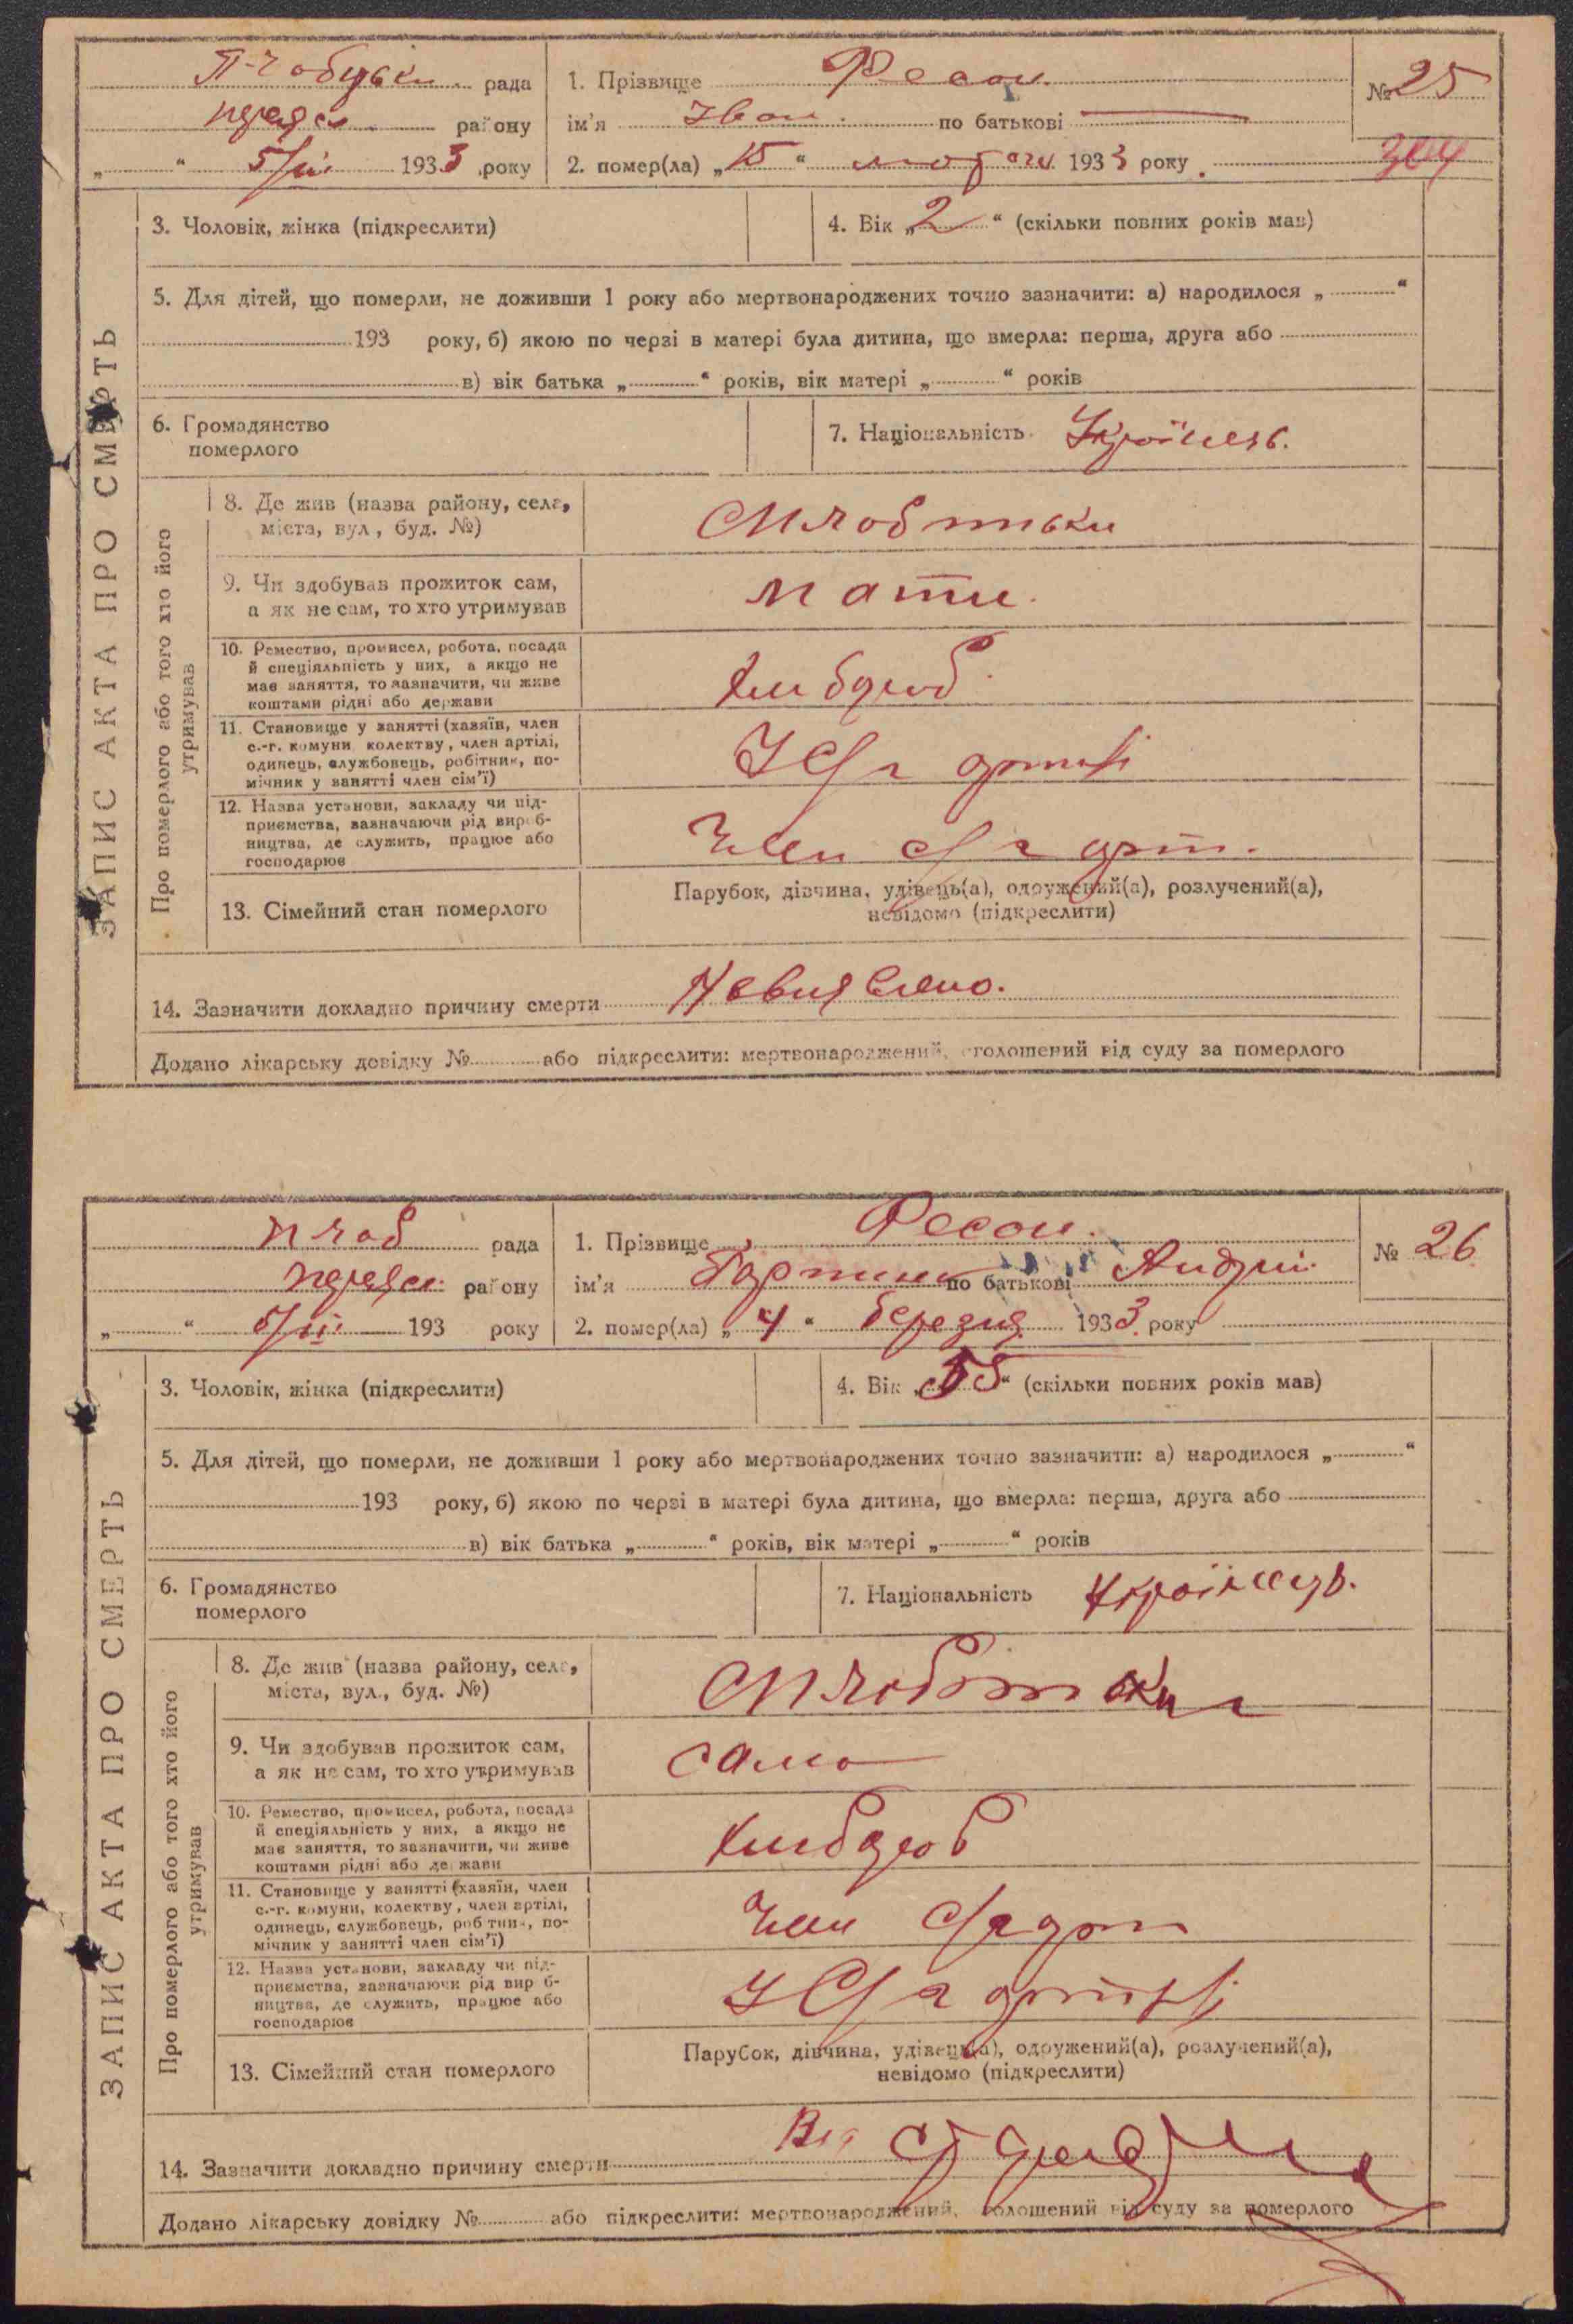 рада
району
5/III 1933 року
1. Прізвище Фесон.
ім'я Іван. по батькові
2. помер(ла) „15“ лютого 1933 року.
№ 25
304
ЗАПИС АКТА ПРО СМЕРТЬ
3. Чоловік, жінка (підкреслити)
4. Вік „2“ (скільки повних років мав)
5. Для дітей, що померли, не доживши 1 року або мертвонароджених точно зазначити: а) народилося „ “
193 року, б) якою по черзі в матері була дитина, що вмерла: перша, друга або
в) вік батька „ “ років, вік матері „ “ років
6. Громадянство
померлого
7. Національність Українець.
Про померлого або того хто його
утримував
8. Де жив (назва району, села,
міста, вул., буд. №)
9. Чи здобував прожиток сам,
а як не сам, то хто утримував
мати.
10. Ремество, промисел, робота, посада
й спеціяльність у них, а якщо не
має заняття, то зазначити, чи живе
коштами рідні або держави
хлібороб
11. Становище у занятті (хазяїн, член
с.-г. комуни колектву, член артілі,
одинець, службовець, робітник, по-
мічник у занятті член сім'ї)
У С/г артілі
12. Назва установи, закладу чи під-
приємства, зазначаючи рід вироб-
ництва, де служить, працює або
господарює
Член с/г арт.
13. Сімейний стан померлого
Парубок, дівчина, удівець(а), одружений(а), розлучений(а),
невідомо (підкреслити)
14. Зазначити докладно причину смерти Невиявлено.
Додано лікарську довідку № або підкреслити: мертвонароджений, оголошений від суду за померлого
рада
району
5/III 193 року
1. Прізвище Фесон.
ім'я по батькові Андрій
2. помер(ла) „4“ березня 1933 року
№ 26
ЗАПИС АКТА ПРО СМЕРТЬ
3. Чоловік, жінка (підкреслити)
4. Вік „55“ (скільки повних років мав)
5. Для дітей, що померли, не доживши 1 року або мертвонароджених точно зазначити: а) народилося „ “
193 року, б) якою по черзі в матері була дитина, що вмерла: перша, друга або
в) вік батька „ “ років, вік матері „ “ років
6. Громадянство
померлого
7. Національність Українець.
Про померлого або того хто його
утримував
8. Де жив (назва району, села,
міста, вул., буд. №)
9. Чи здобував прожиток сам,
а як не сам, то хто утримував
сама
10. Ремество, промисел, робота, посада
й спеціяльність у них, а якщо не
має заняття, то зазначити, чи живе
коштами рідні або держави
хлібороб
11. Становище у занятті (хазяїн, член
с.-г. комуни, колектву, член артілі,
одинець, службовець, робітник, по-
мічник у занятті член сім'ї)
Член С/г арт
12. Назва установи, закладу чи під-
приємства, зазначаючи рід вироб-
ництва, де служить, працює або
господарює
У С/г артілі
13. Сімейний стан померлого
Парубок, дівчина, удівець(а), одружений(а), розлучений(а),
невідомо (підкреслити)
14. Зазначити докладно причину смерти
Додано лікарську довідку № або підкреслити: мертвонароджений, оголошений від суду за померлого